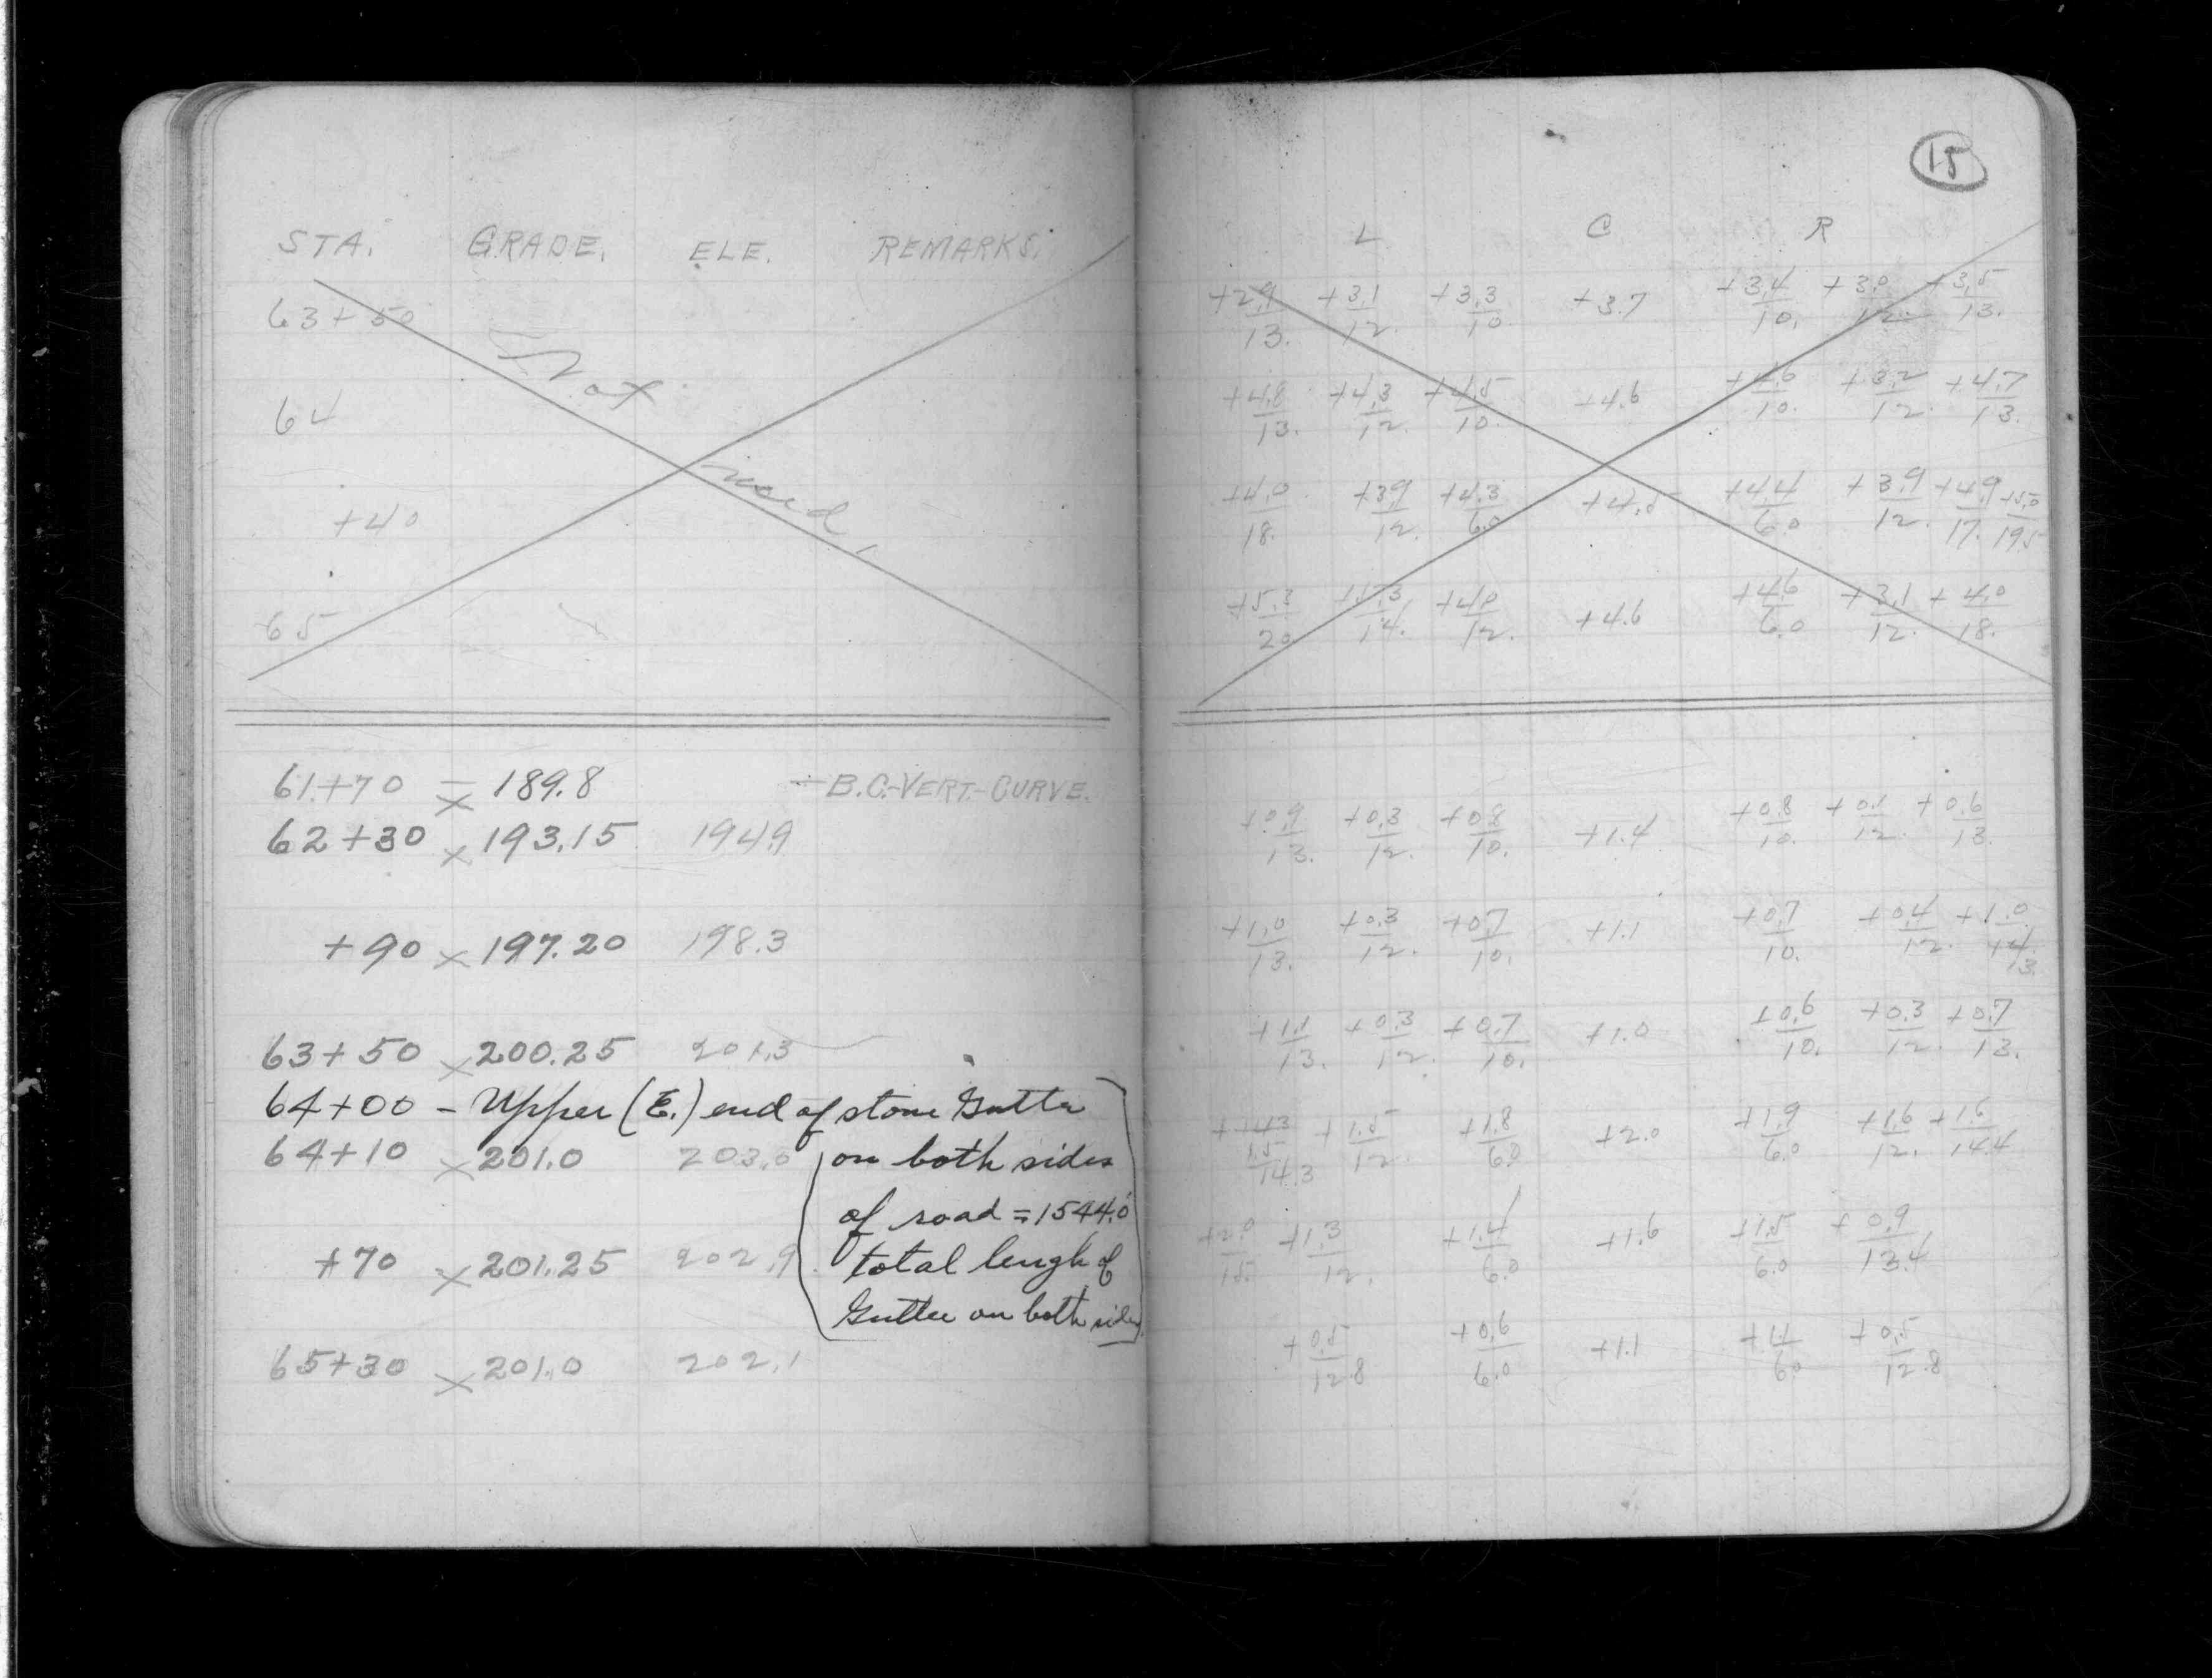 STA. GRADE. ELE. REMARKS.
63+50
Not
64
used,
+40
65
61+70 = 189.8 - B.C.-VERT.-CURVE.
62+30 x 193.15 194.9
+90 x 197.20 198.3
63+50 x 200.25 201.3
64+00 - Upper (E.) end of stone Gutter
64+10 x 201.0 203.0 on both sides
of road = 1544.0'
+70 x 201.25 202.9 total lengh of
Gutter on both sides
65+30 x 201.0 202.1
15
L C R
+2.9/13. +3.1/12. +3.3/10. +3.7 +3.4/10. +3.0/12. +3.5/13.
+4.8/13. +4.3/12. +4.5/10. +4.6 +4.6/10. +3.2/12. +4.7/13.
+4.0/18. +3.9/12. +4.3/6.0 +4.4/6.0 +3.9/12. +4.9/17. +5.0/19.5
+5.3/20 +4.0/12. +4.6 +4.6/6.0 +3.1/12. +4.0/18.
+0.9/13. +0.3/12. +0.8/10. +1.4 +0.8/10. +0.1/12. +0.6/13.
+1.0/13. +0.3/12. +0.7/10. +1.1 +0.7/10. +0.4/12. +1.0/13.
+1.1/13. +0.3/12. +0.7/10. +1.0 +0.6/10. +0.3/12. +0.7/13.
1.5/14.3 +1.5/12. +1.8/6.0 +2.0 +1.9/6.0 +1.6/12. +1.6/14.4
+2.0/15 +1.3/12. +1.4/6.0 +1.6 +1.5/6.0 +0.9/13.4
+0.5/12.8 +0.6/6.0 +1.1 +1.1/6.0 +0.5/12.8